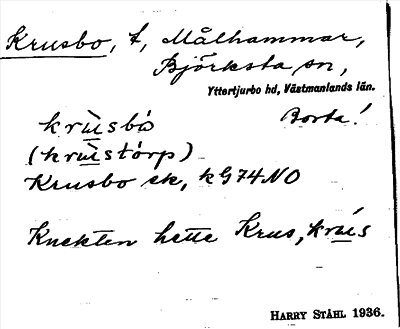 Krusbo, t, Målhammar,
Björksta sn,
Yttertjurbo hd, Västmanlands län.
Borta!
krùsbò
(krùstórp)
Krusbo ek, kG74NO
Knekten hette Krus, krús
HARRY STÅHL 1936.